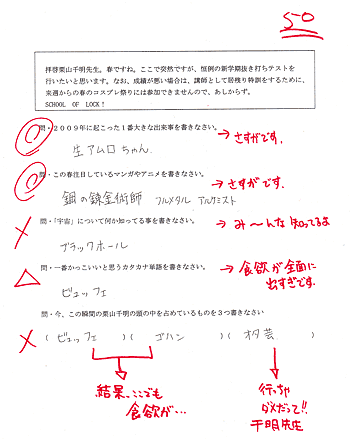 50
拝啓栗山千明先生。春ですね。ここで突然ですが、恒例の新学期抜き打ちテストを
行いたいと思います。なお、成績が悪い場合は、講師として居残り特訓をするために、
来週からの春のコスプレ祭りには参加できませんので、あしからず。
SCHOOL OF LOCK!
問・2009年に起こった1番大きな出来事を書きなさい。
→さすがです。
生アムロちゃん
問・この春注目しているマンガやアニメを書きなさい。
→さすがです。
鋼の錬金術師 フルメタル アルケミスト
問・「宇宙」について何か知ってる事を書きなさい。
→み〜んな知ってるよ
ブラックホール
問・一番かっこいいと思うカタカナ単語を書きなさい。
→食欲が全面に
出すぎです。
ビュッフェ
問・今、この瞬間の栗山千明の頭の中を占めているものを3つ書きなさい
(ビュッフェ)(ゴハン)(オタ芸)
結果、ここでも
食欲が…
行っちゃ
ダメだって!!
千明先生